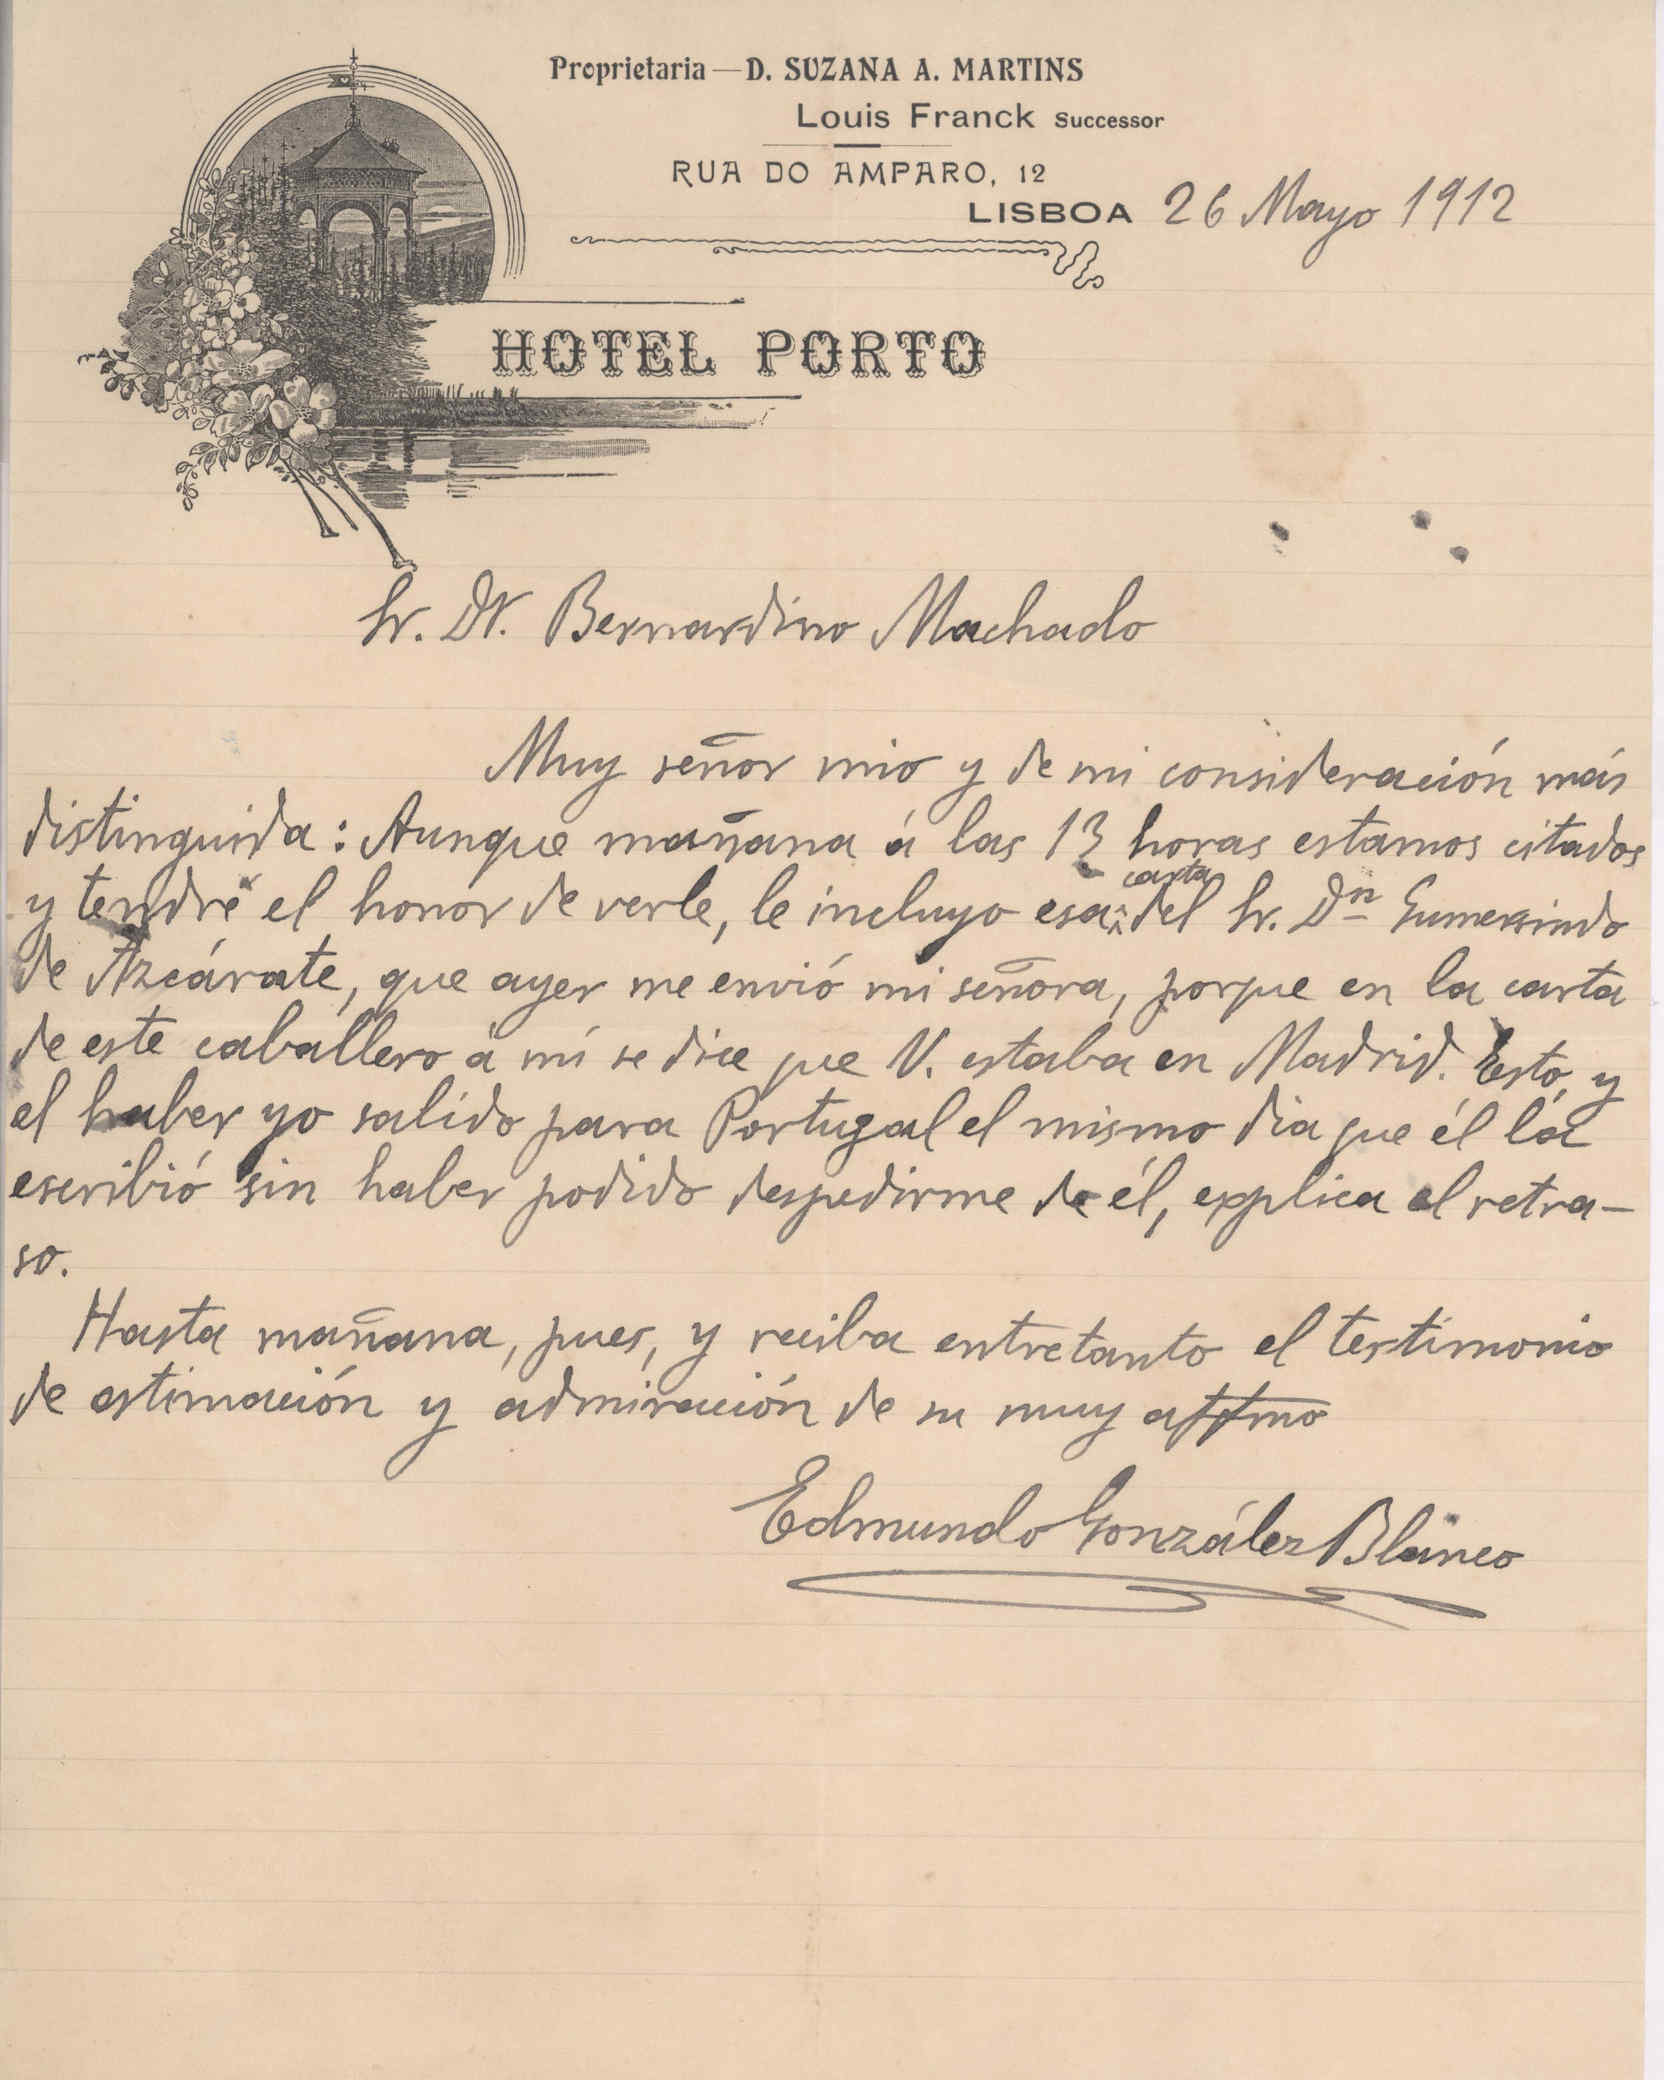 Proprietaria — D. SUZANA A. MARTINS
Louis Franck Successor
RUA DO AMPARO, 12
LISBOA 26 Mayo 1912
HOTEL PORTO
Sr. Dr. Bernardino Machado
Muy señor mio y de mi consideración más
distinguida: Aunque mañana á las 13 horas estamos citados
carta
y tendré el honor de verle, le incluyo esa del Sr. Dn Gumersindo
de Azcárate, que ayer me envió mi señora, porque en la carta
de este caballero á mí se dice que V. estaba en Madrid. Esto, y
el haber yo salido para Portugal el mismo dia que él la
escribió sin haber podido despedirme de él, explica el retra-
so.
Hasta mañana, pues, y reciba entretanto el testimonio
de estimación y admiración de su muy affmo
Edmundo González Blanco